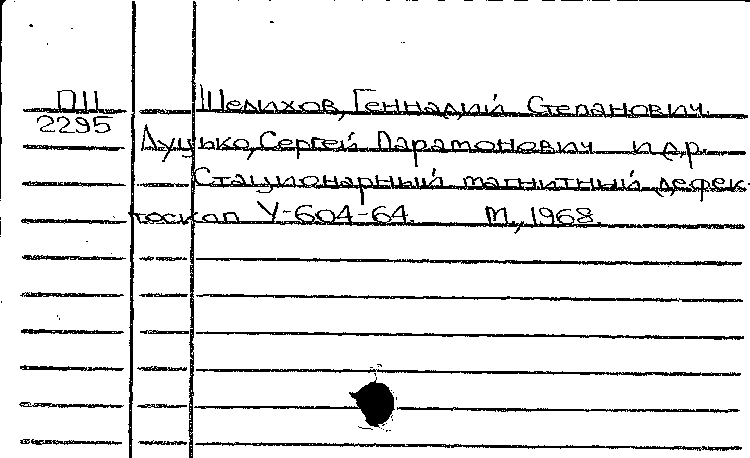 П11 Шелихов, Геннадий Степанович.
2295
Луцько, Сергей Парамонович и др.
Стационарный магнитный дефек-
тоскап У-604-64. М., 1968.